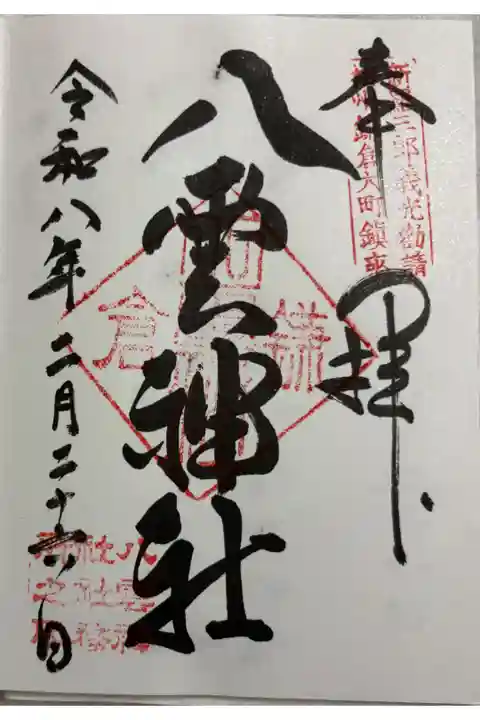 奉拝
新羅三郎義光勧請
鎌倉大町鎮座
八雲神社
鎌倉
令和八年二月二十六日